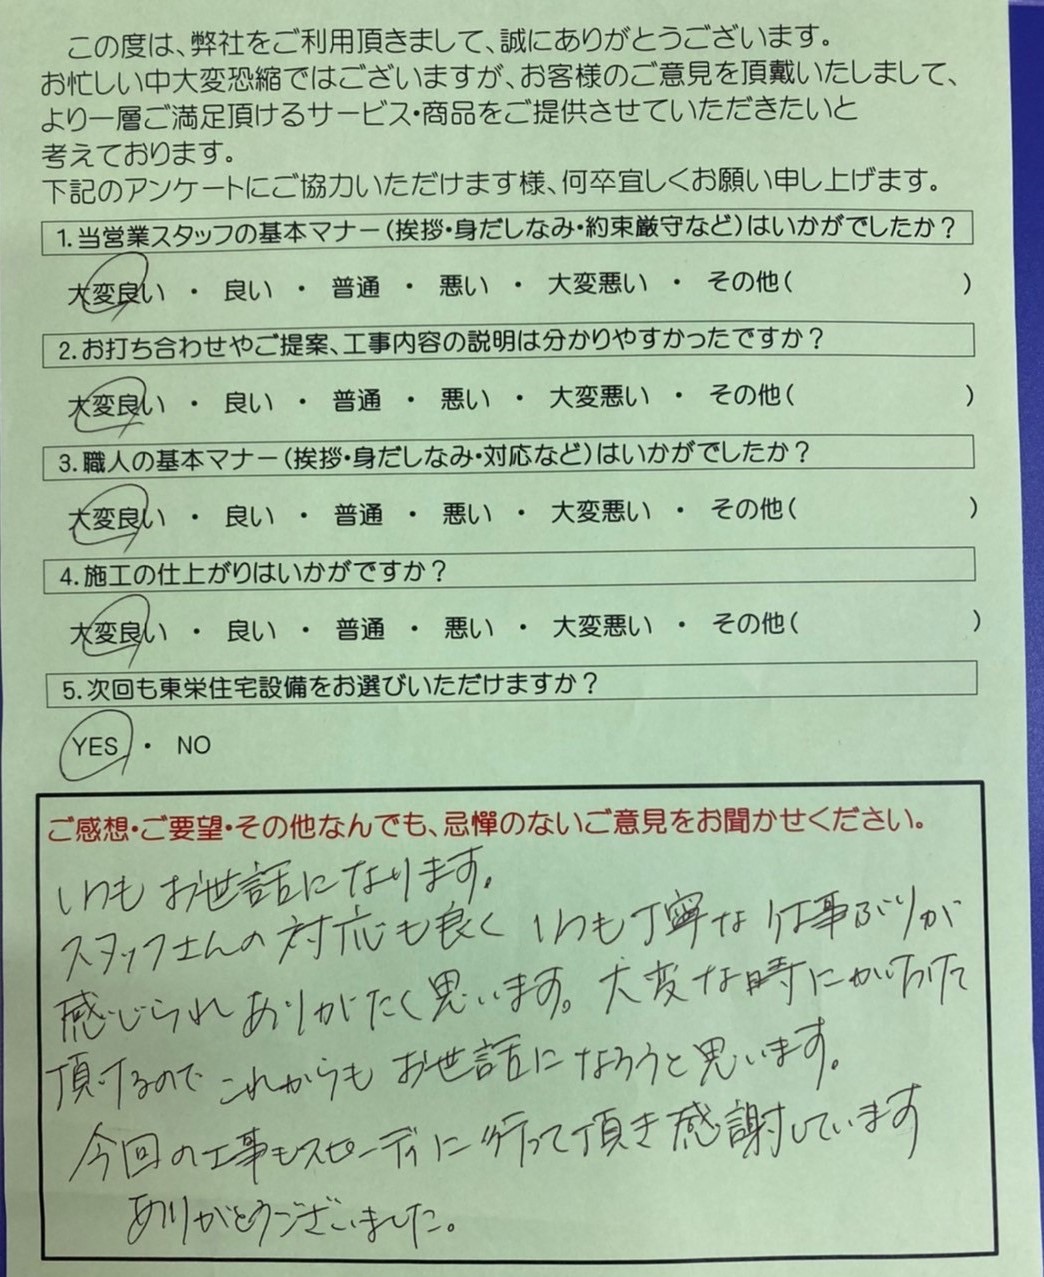 この度は、弊社をご利用頂きまして、誠にありがとうございます。
お忙しい中大変恐縮ではございますが、お客様のご意見を頂戴いたしまして、
より一層ご満足頂けるサービス・商品をご提供させていただきたいと
考えております。
下記のアンケートにご協力いただけます様、何卒宜しくお願い申し上げます。
1.当営業スタッフの基本マナー(挨拶・身だしなみ・約束厳守など)はいかがでしたか?
大変良い ・ 良い ・ 普通 ・ 悪い ・ 大変悪い ・ その他( )
2.お打ち合わせやご提案、工事内容の説明は分かりやすかったですか?
大変良い ・ 良い ・ 普通 ・ 悪い ・ 大変悪い ・ その他( )
3.職人の基本マナー(挨拶・身だしなみ・対応など)はいかがでしたか?
大変良い ・ 良い ・ 普通 ・ 悪い ・ 大変悪い ・ その他( )
4.施工の仕上がりはいかがですか?
大変良い ・ 良い ・ 普通 ・ 悪い ・ 大変悪い ・ その他( )
5.次回も東栄住宅設備をお選びいただけますか?
YES ・ NO
ご感想・ご要望・その他なんでも、忌憚のないご意見をお聞かせください。
いつもお世話になります。
スタッフさんの対応も良く いつも丁寧な仕事ぶりが
感じられありがたく思います。大変な時にかけつけて
頂けるので これからもお世話になろうと思います。
今回の工事もスピーディに行って頂き感謝しています
ありがとうございました。